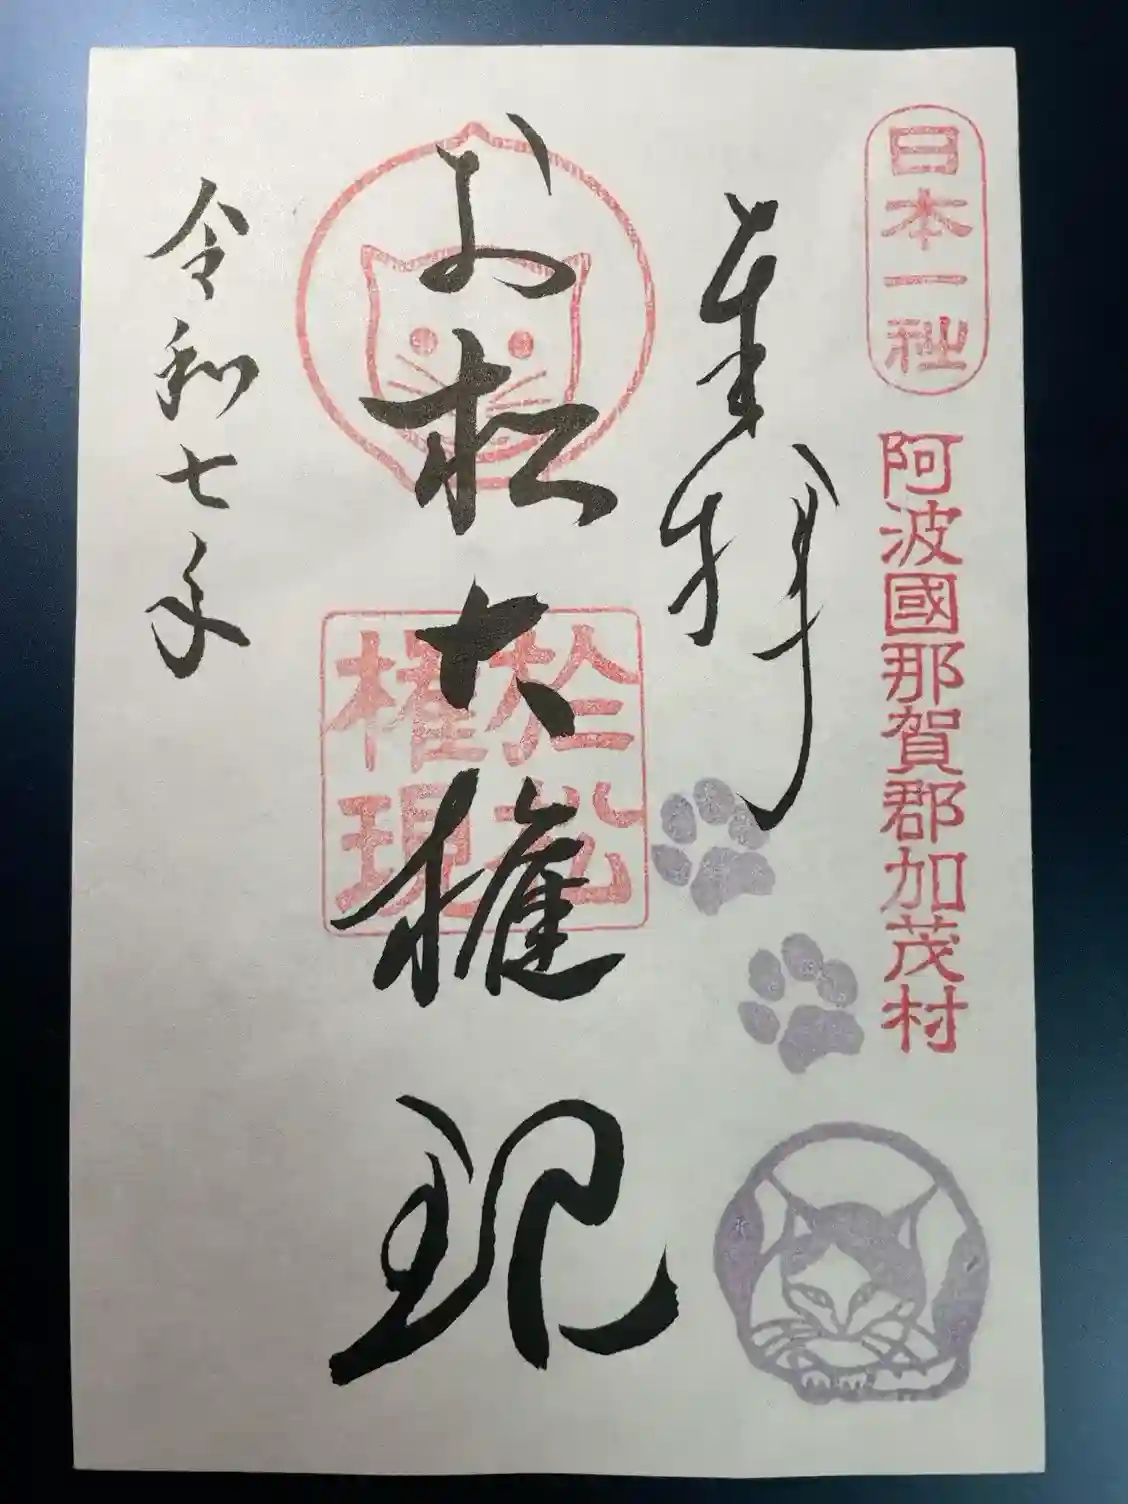 日本一社
阿波國那賀郡加茂村
奉拝
お松大権現
於松
権現
令和七年